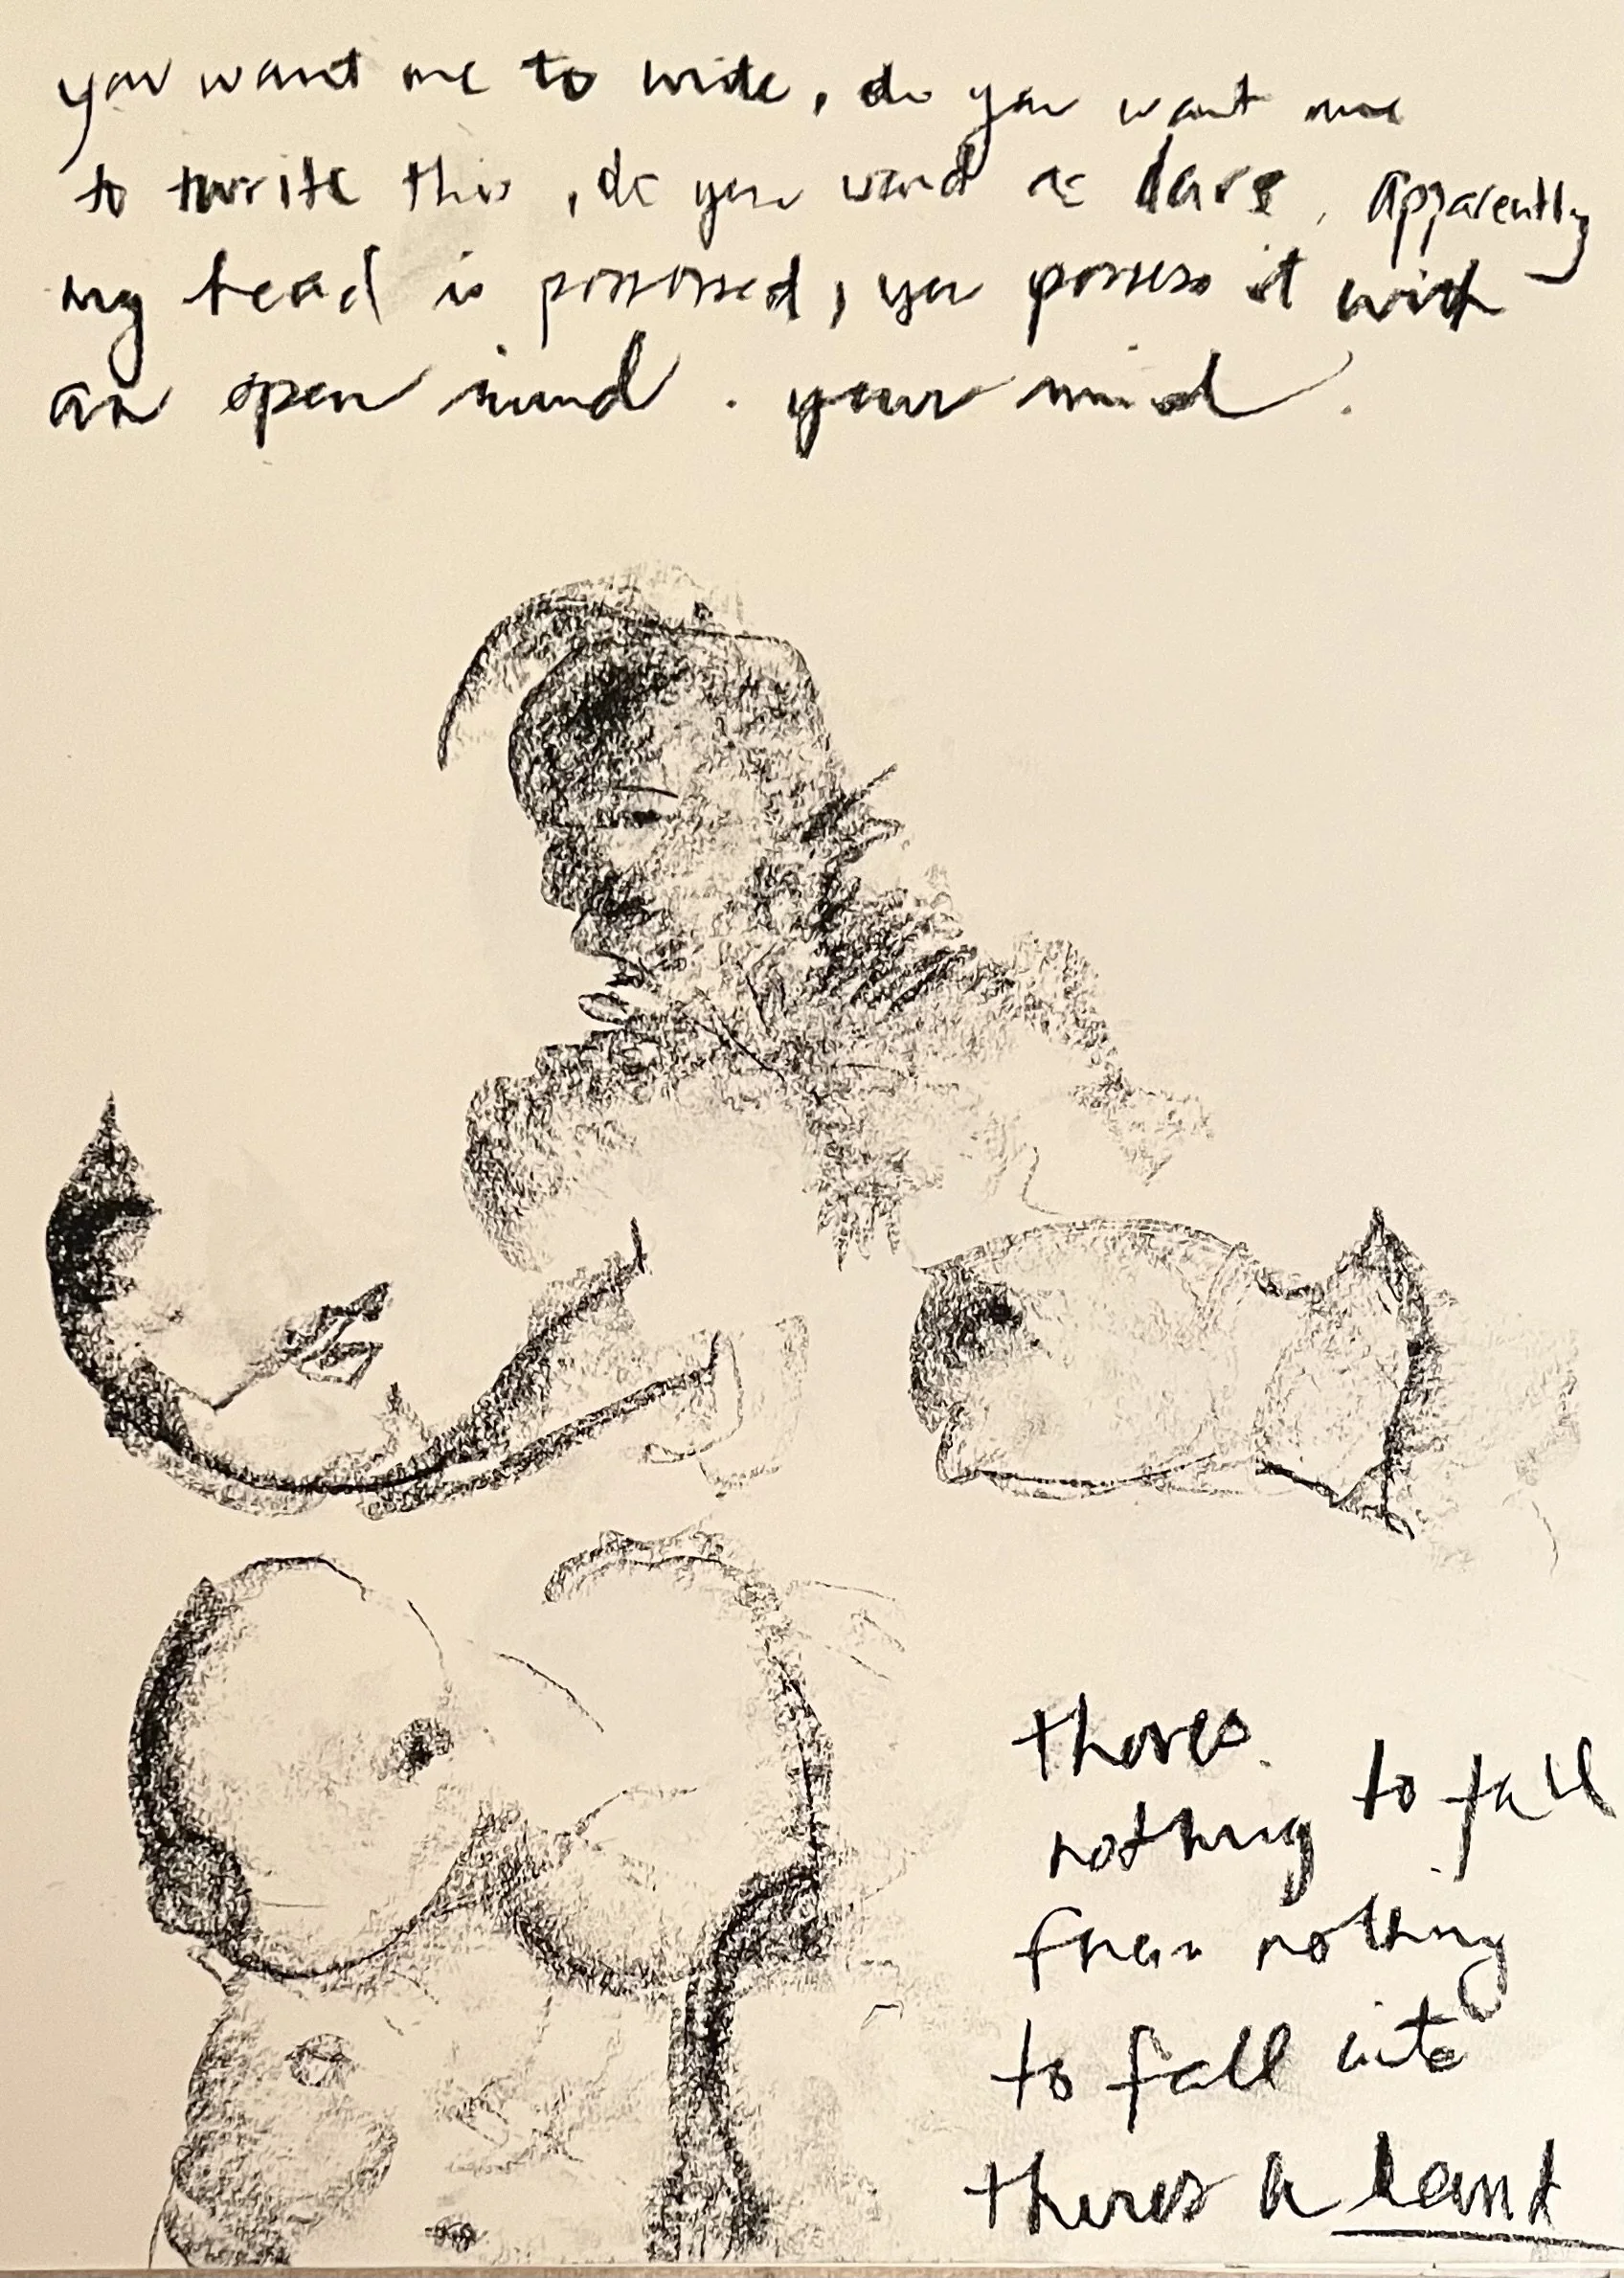 you want me to write, do you want me
to twrite this, do you want a dare. Apparently
my head is possessed, you possess it with
an open mind. your mind.
theres
nothing to fall
from nothing
to fall into
theres a land